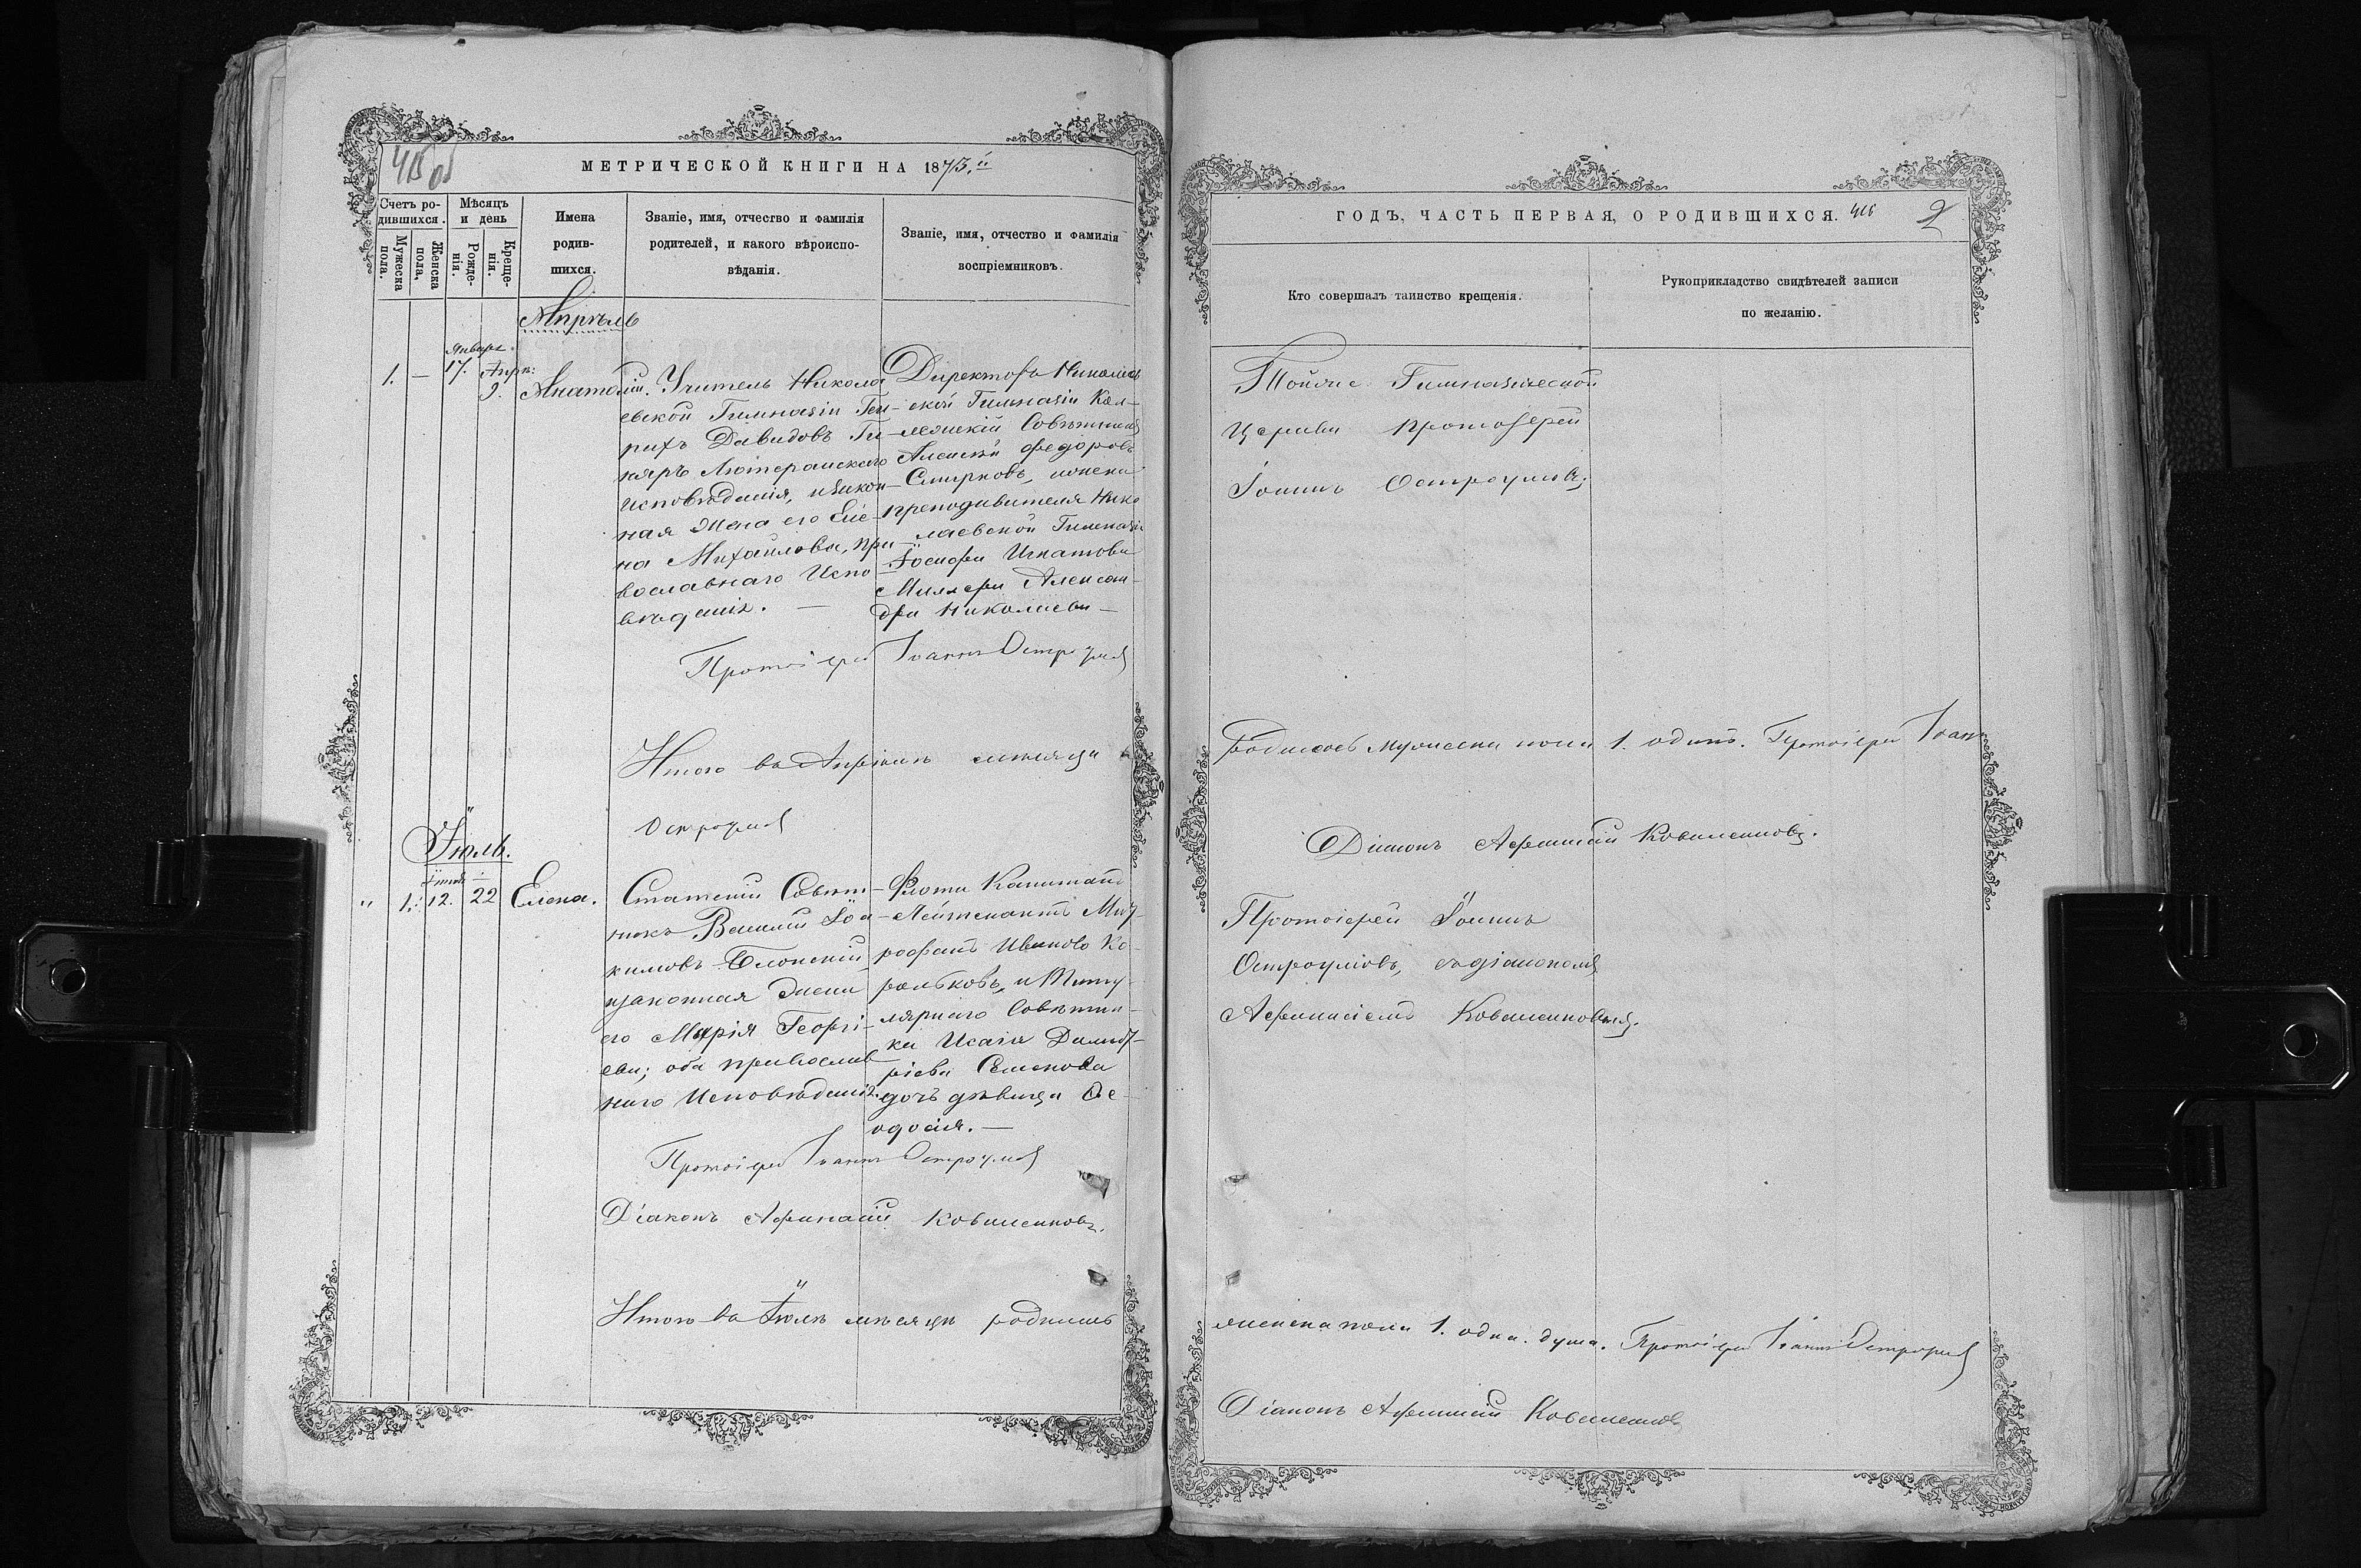 415 об
МЕТРИЧЕСКОЙ КНИГИ НА 1873.й
Счетъ ро-
дившихся.
Мужеска
пола.
Женска
пола,
Мѣсяцъ
и день
Рожде-
нія.
Креще-
нія.
Имена
родив-
шихся.
Званіе, имя, отчество и фамилія
родителей, и какого вѣроиспо-
вѣданія.
Званіе, имя, отчество и фамилія
воспріемниковъ.
Апрѣль
1. — Января 17. Апр: 9. Анатолій.
Учитель Никола
евской Гимназіи Ген-
рихъ Давидовъ Ги-
няръ Лютеранскаго
исповѣданія, изакон-
ная жена его Еле-
на Михайлова, пра-
вославнаго Испо-
вѣданія. —
Директоръ Николаев
ской Гимназіи Кол-
лежскій Совѣтникъ
Алексѣй Федоровъ
Смирновъ, ижена
преподавателя Нико
лаевской Гимназіи
Іосифа Игнатова
Миллера Алексан-
дра Николаева —
Протоіерей Іоаннъ Остроумовъ
Итого въ Апрѣлѣ мѣсяцѣ
Остроумовъ
Іюль.
" 1. Іюля 12. 22 Елена.
Статскій Совѣт-
никъ Василій Іоа-
кимовъ Блонскій
изаконная жена
его Марія Георгі-
ева; оба православ
наго Исповѣданія.
Флота Капитанъ
Лейтенантъ Мит-
рофанъ Ивановъ Ко-
рольковъ, и Титу-
лярнаго Совѣтни-
ка Исаія Димит-
ріева Семенова
дочь дѣвица Ѳе-
одосія. —
Протоіерей Іоаннъ Остроумовъ
Діаконъ Афанасій Ковалениковъ.
Итого въ Іюлѣ мѣсяцѣ родилась
ГОДЪ, ЧАСТЬ ПЕРВАЯ, О РОДИВШИХСЯ. 416 2
Кто совершалъ таинство крещенія.
Рукоприкладство свидѣтелей записи
по желанію.
Тойже Гимназической
Церкви протоіерей
Іоаннъ Остроумовъ;
родилось мужеска пола 1. одинъ. Протоіерей Іоанн
Діаконъ Афанасій Ковалениковъ.
Протоіерей Іоаннъ
Остроумовъ, съдіакономъ
Афанасіемъ Ковалениковымъ.
женска пола 1. одна. душа. Протоіерей Іоаннъ Остроумовъ
Діаконъ Афанасій Ковалениковъ